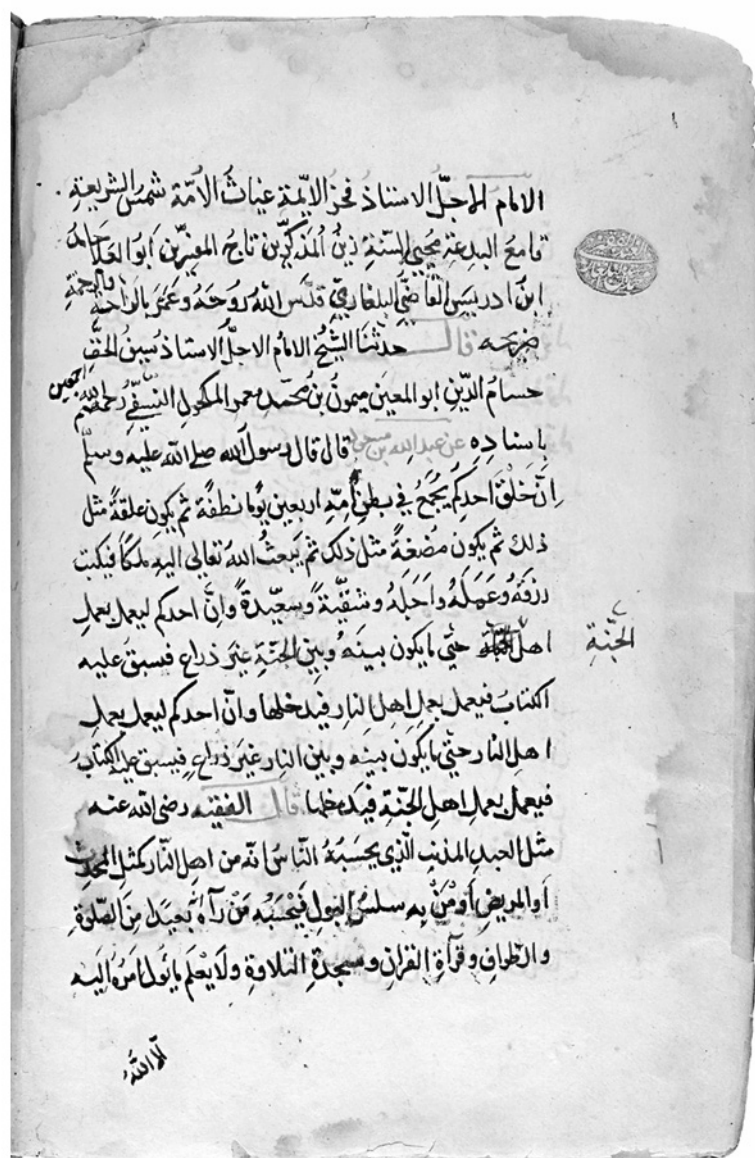 الامام الاجلّ الاستاذ فخر الايمّة غياثُ الاُمّة شمسُ الشريعةِ
قامعُ البدعةِ محيي السنّةِ زينُ المذكّرين تاجُ المعبّرين ابو العلا حامد
ابنُ ادريسَ القاضي البلغاريّ قدّس الله روحَهُ وعمّر بالراحةِ والرحمةِ
ضريحه قال حدثنا الشيخ الامام الاجلّ الاستاذ سيف الحقّ
حسامُ الدّينِ ابو المعين ميمونُ بنُ محمّد بن معمر المكحول النسفيّ رحمهم الله اجمعين
باسنادِهِ عن عبد الله بن مسعود قال قال رسول الله صلى الله عليه وسلّم
اِنّ خلْقَ احدِكُم يُجمعُ في بطنِ اُمّهِ اربعين يومًا نطفةً ثم يكون علقةً مثل
ذلك ثم يكون مضغةً مثل ذلك ثم يبعثُ اللهُ تعالى اليه ملكًا فيكتب
رزقَهُ وعَمَلَهُ واَجَلَهُ وشقيّة وسعيدةً واِنّ احدكم ليعمل بعملِ
اهلِ حتّي ما يكون بينَهُ وبين الجنّةِ غير ذراع فسبق عليه
الجنّةِ
الكتابُ فيعمل بعملِ اهلِ النارِ فيدخلها وانّ احدكم ليعمل بعملِ
اهلِ النار حتّي ما يكون بينه وبين النارِ غيرَ ذراعٍ فيسبق عليه الكتابُ
فيعمل بعملِ اهلِ الجنّةِ فيدخلها قال الفقيه رضى الله عنه
مثل العبدِ المذنبِ الّذي يحسَبُهُ النّاسُ انّه من اهلِ النّار كمثلِ المحدِث
اَوالمريضِ اَوْمَنْ بِهِ سلسُ البولِ فيَحْسَبُه مَنْ رآهُ بعيدًا مِنَ الصّلوةِ
والطّوافِ وقرآةِ القرانِ وسجدةِ التلاوةِ ولَا يَعْلَم ما يَؤُل اَمرُهُ اليه
لّا اللهُ